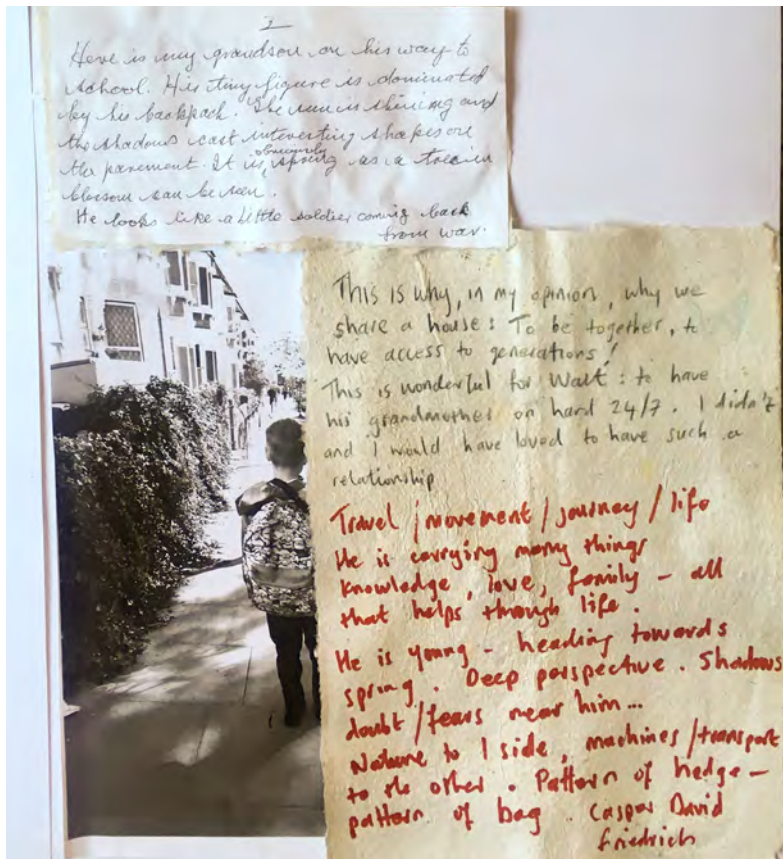 2
Here is my grandson on his way to
school. His tiny figure is dominated
by his backpack. The sun is shining and
the shadows cast interesting shapes on
the pavement. It is obviously spring as a tree in
blossom can be seen.
He looks like a little soldier coming back
from war.
This is why, in my opinion, why we
share a house: To be together, to
have access to generations!
This is wonderful for Walt: to have
his grandmother on hard 24/7. I didn't
and I would have loved to have such a
relationship
Travel / movement / journey / life
He is carrying many things
knowledge, love, family - all
that helps through life.
He is young - heading towards
spring. Deep perspective. Shadows
doubt/fears near him...
Nature to 1 side, machines/transport
to the other. Pattern of hedge -
pattern of bag. Caspar David
Friedrich